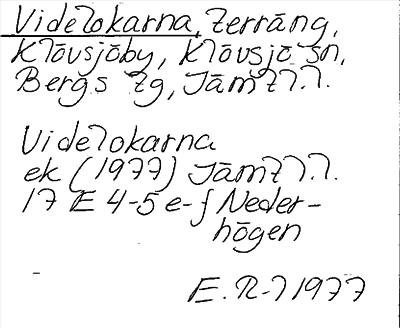 Videlokarna, terräng,
Klövsjöby, Klövsjö sn,
Bergs tg, Jämtl.l.
Videlokarna
ek (1977) Jämtl.l.
17 E 4-5 e-f Neder-
högen
E. R-l 1977